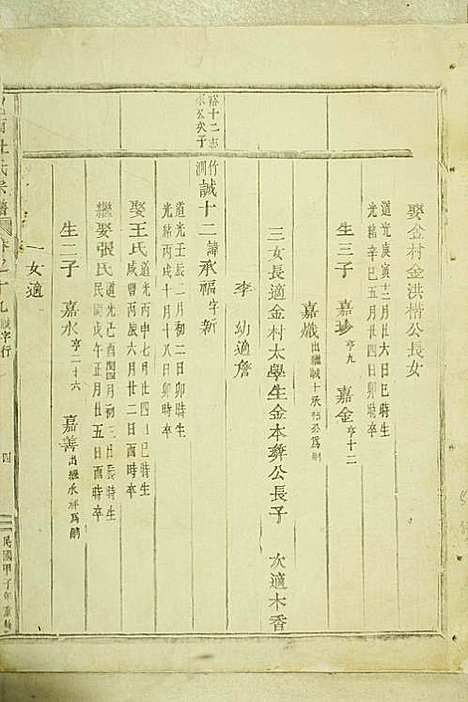 娶金村金洪楷公長女
道光庚寅十二月六日巳時生
光緒辛巳五月廿四日卯時卒
生三子 嘉珍亨九 嘉金亨十二
嘉熾出繼誠十承公為嗣
三女長適金村太學生金本彝公長子 次適木香
李 幼適詹
裕十二志
水公次子
竹澗誠十二諱承福字新
道光壬辰二月初二日卯時生
光緒丙戌十月十八日卯時卒
娶王氏道光丙申七月廿四日巳時生
咸豐丙辰六月廿二日酉時卒
繼娶張氏道光己酉四月初三日辰時生
民國戊午正月廿五日酉時卒
生二子 嘉永亨二十六 嘉善出繼承祥為嗣
一女適
杜氏宗譜 卷之十九 誠字行 四 民國甲子年重輯